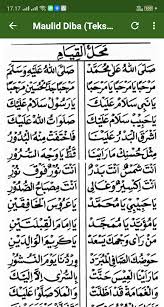 17.17
Maulid Diba (Teks...
محل القيام
صَلَّى اللهُ عَلَى مُحَمَّدْ صَلَّى اللهُ عَلَيْهِ وَسَلَّمْ
مَرْحَبًا يَا مَرْحَبًا يَا مَرْحَبًا مَرْحَبًا جَدَّ الْحُسَيْنِ مَرْحَبًا
يَا نَبِي سَلَامٌ عَلَيْكَ يَا رَسُولْ سَلَامٌ عَلَيْكَ
يَا حَبِيبْ سَلَامٌ عَلَيْكَ صَلَوَاتُ اللهِ عَلَيْكَ
أَشْرَقَ الْبَدْرُ عَلَيْنَا فَاخْتَفَتْ مِنْهُ الْبُدُورُ
مِثْلَ حُسْنِكَ مَا رَأَيْنَا قَطُّ يَا وَجْهَ السُّرُورِ
أَنْتَ شَمْسٌ أَنْتَ بَدْرٌ أَنْتَ نُورٌ فَوْقَ نُورٍ
أَنْتَ إِكْسِيرٌ وَغَالِي أَنْتَ مِصْبَاحُ الصُّدُورِ
يَا حَبِيبِي يَا مُحَمَّدْ يَا عَرُوسَ الْخَافِقَيْنِ
يَا مُؤَيَّدْ يَا مُمَجَّدْ يَا إِمَامَ الْقِبْلَتَيْنِ
مَنْ رَأَى وَجْهَكَ يَسْعَدْ يَا كَرِيمَ الْوَالِدَيْنِ
حَوْضُكَ الصَّافِي الْمُبَرَّدْ وِرْدُنَا يَوْمَ النُّشُورِ
مَا رَأَيْنَا الْعِيسَ حَنَّتْ بِالسُّرَى إِلَّا إِلَيْكَ